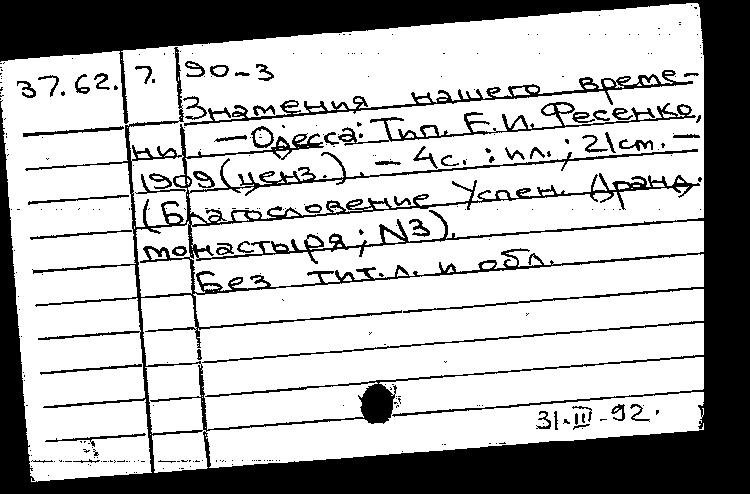 37.62. 7. 90-3
Знамения нашего време-
ни. — Одесса: Тип. Е.И. Фесенко,
1909 (ценз.). — 4с. : ил. ; 21cm. —
(Благословение Успен. Дранд.
монастыря; N3).
Без тит.л. и обл.
31.III-92.